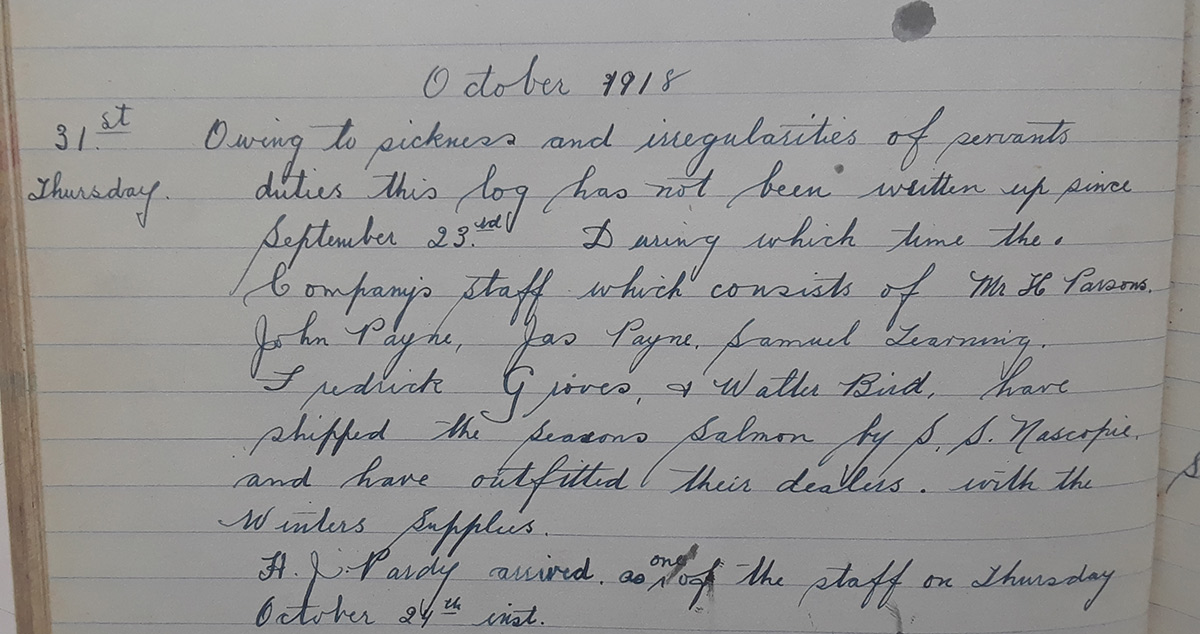 October 1918
31.st Owing to sickness and irregularities of servants
Thursday. duties this log has not been written up since
September 23.rd During which time the.
Companys staff which consists of Mr H Parsons.
John Payne, Jas Payne. Samuel Learning.
Fredrick Groves, & Walter Bird, have
shipped the seasons Salmon by S. S. Nascopie.
and have outfitted their dealers. with the
Winters Supplies.
H. J. Pardy arrived. as one of the staff on Thursday
October 24th inst.